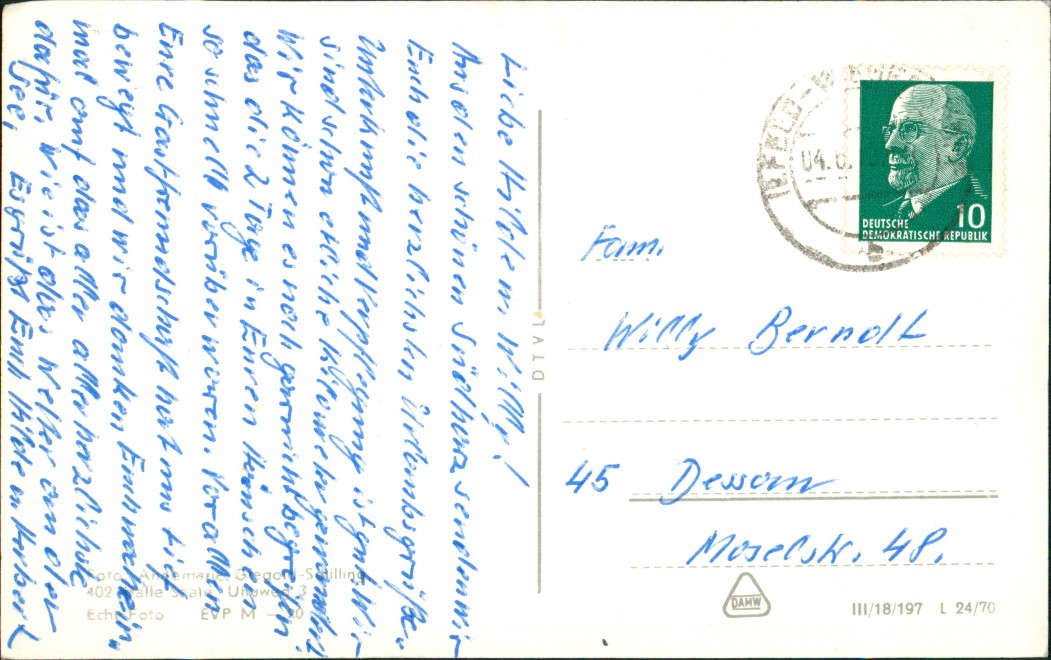 Liebe Hilde u. Willy!
Aus dem schönen Südharz senden wir
Euch die herzlichsten Urlaubsgrüße.
Unterkunft und Verpflegung ist gut. Wir
sind schon etliche Kilometer gewandert.
Wir können es noch garnicht begreifen
das die 2 Tage in Euren Heim schon
so schnell vorüber waren. Vor allem
Eure Gastfreundschaft hat uns tief
bewegt und wir danken Euch noch ein
mal auf das aller aller herzlichste
dafür. Wie ist das Wetter an der
See. Es grüßt Euch Hilde u. Hubert
Foto: Annemarie Gregori-Schilling
402 Halle Saale, Uhuweg 3
Echt Foto EVP M
DTVL
04. 6.
DEUTSCHE
DEMOKRATISCHE REPUBLIK
10
Fam.
Willy Berndt
45 Dessau
Moselstr. 48.
DAMW
III/18/197 L 24/70